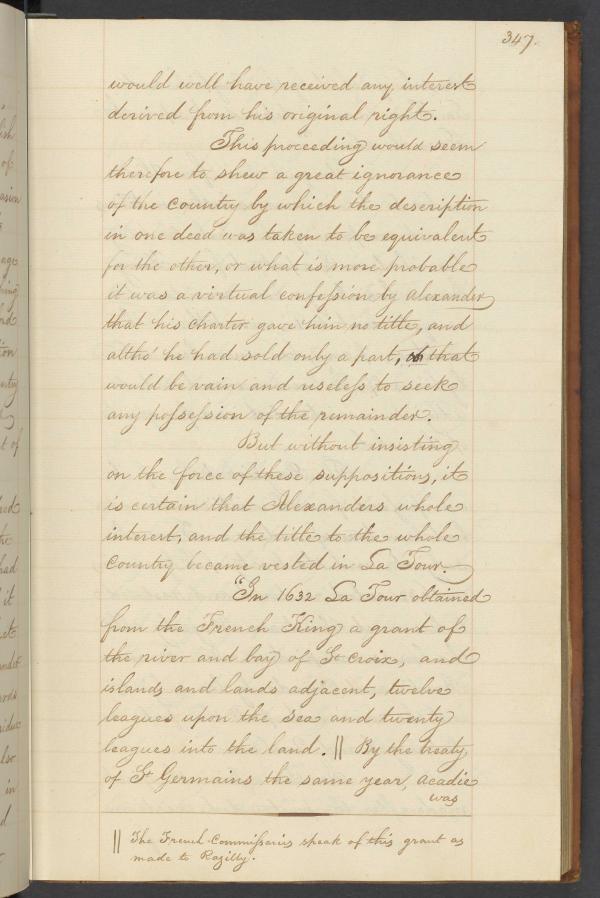 347.
would well have received any interest
derived from his original right.
This proceeding would seem
therefore to shew a great ignorance
of the country by which the description
in one deed was taken to be equivalent
for the other, or what is more probable
it was a virtual confession by Alexander
that his charter gave him no title, and
altho' he had sold only a part, that
would be vain and useless to seek
any possession of the remainder.
But without insisting
on the force of these suppositions, it
is certain that Alexanders whole
interest, and the title to the whole
country became vested in La Tour.
"In 1632 La Tour obtained
from the French King a grant of
the river and bay of St Croix, and
islands and lands adjacent, twelve
leagues upon the sea and twenty
leagues into the land. || By the treaty
of St Germains the same year, Acadie
was
|| The French Commissaries speak of this grant as
made to Razilly.